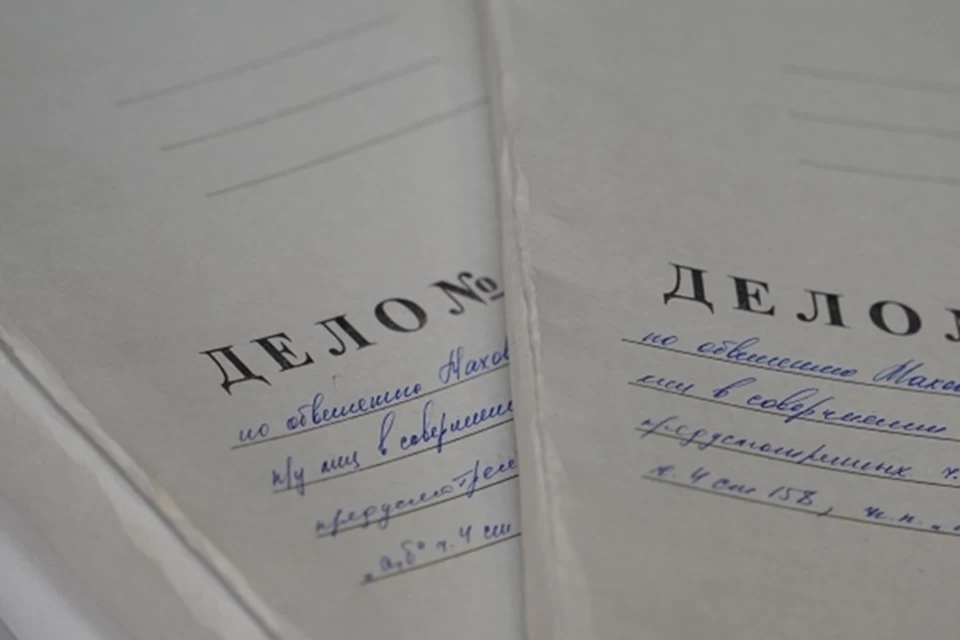 ДЕЛО №
по обвинению Махов
п/у лиц в совершении
предусмотрен
„а,б" ч. 4 ст
ДЕЛО
по обвинению Махов
лиц в совершении
предусмотренных ч.
ч. 4 ст 158, ч.п. „